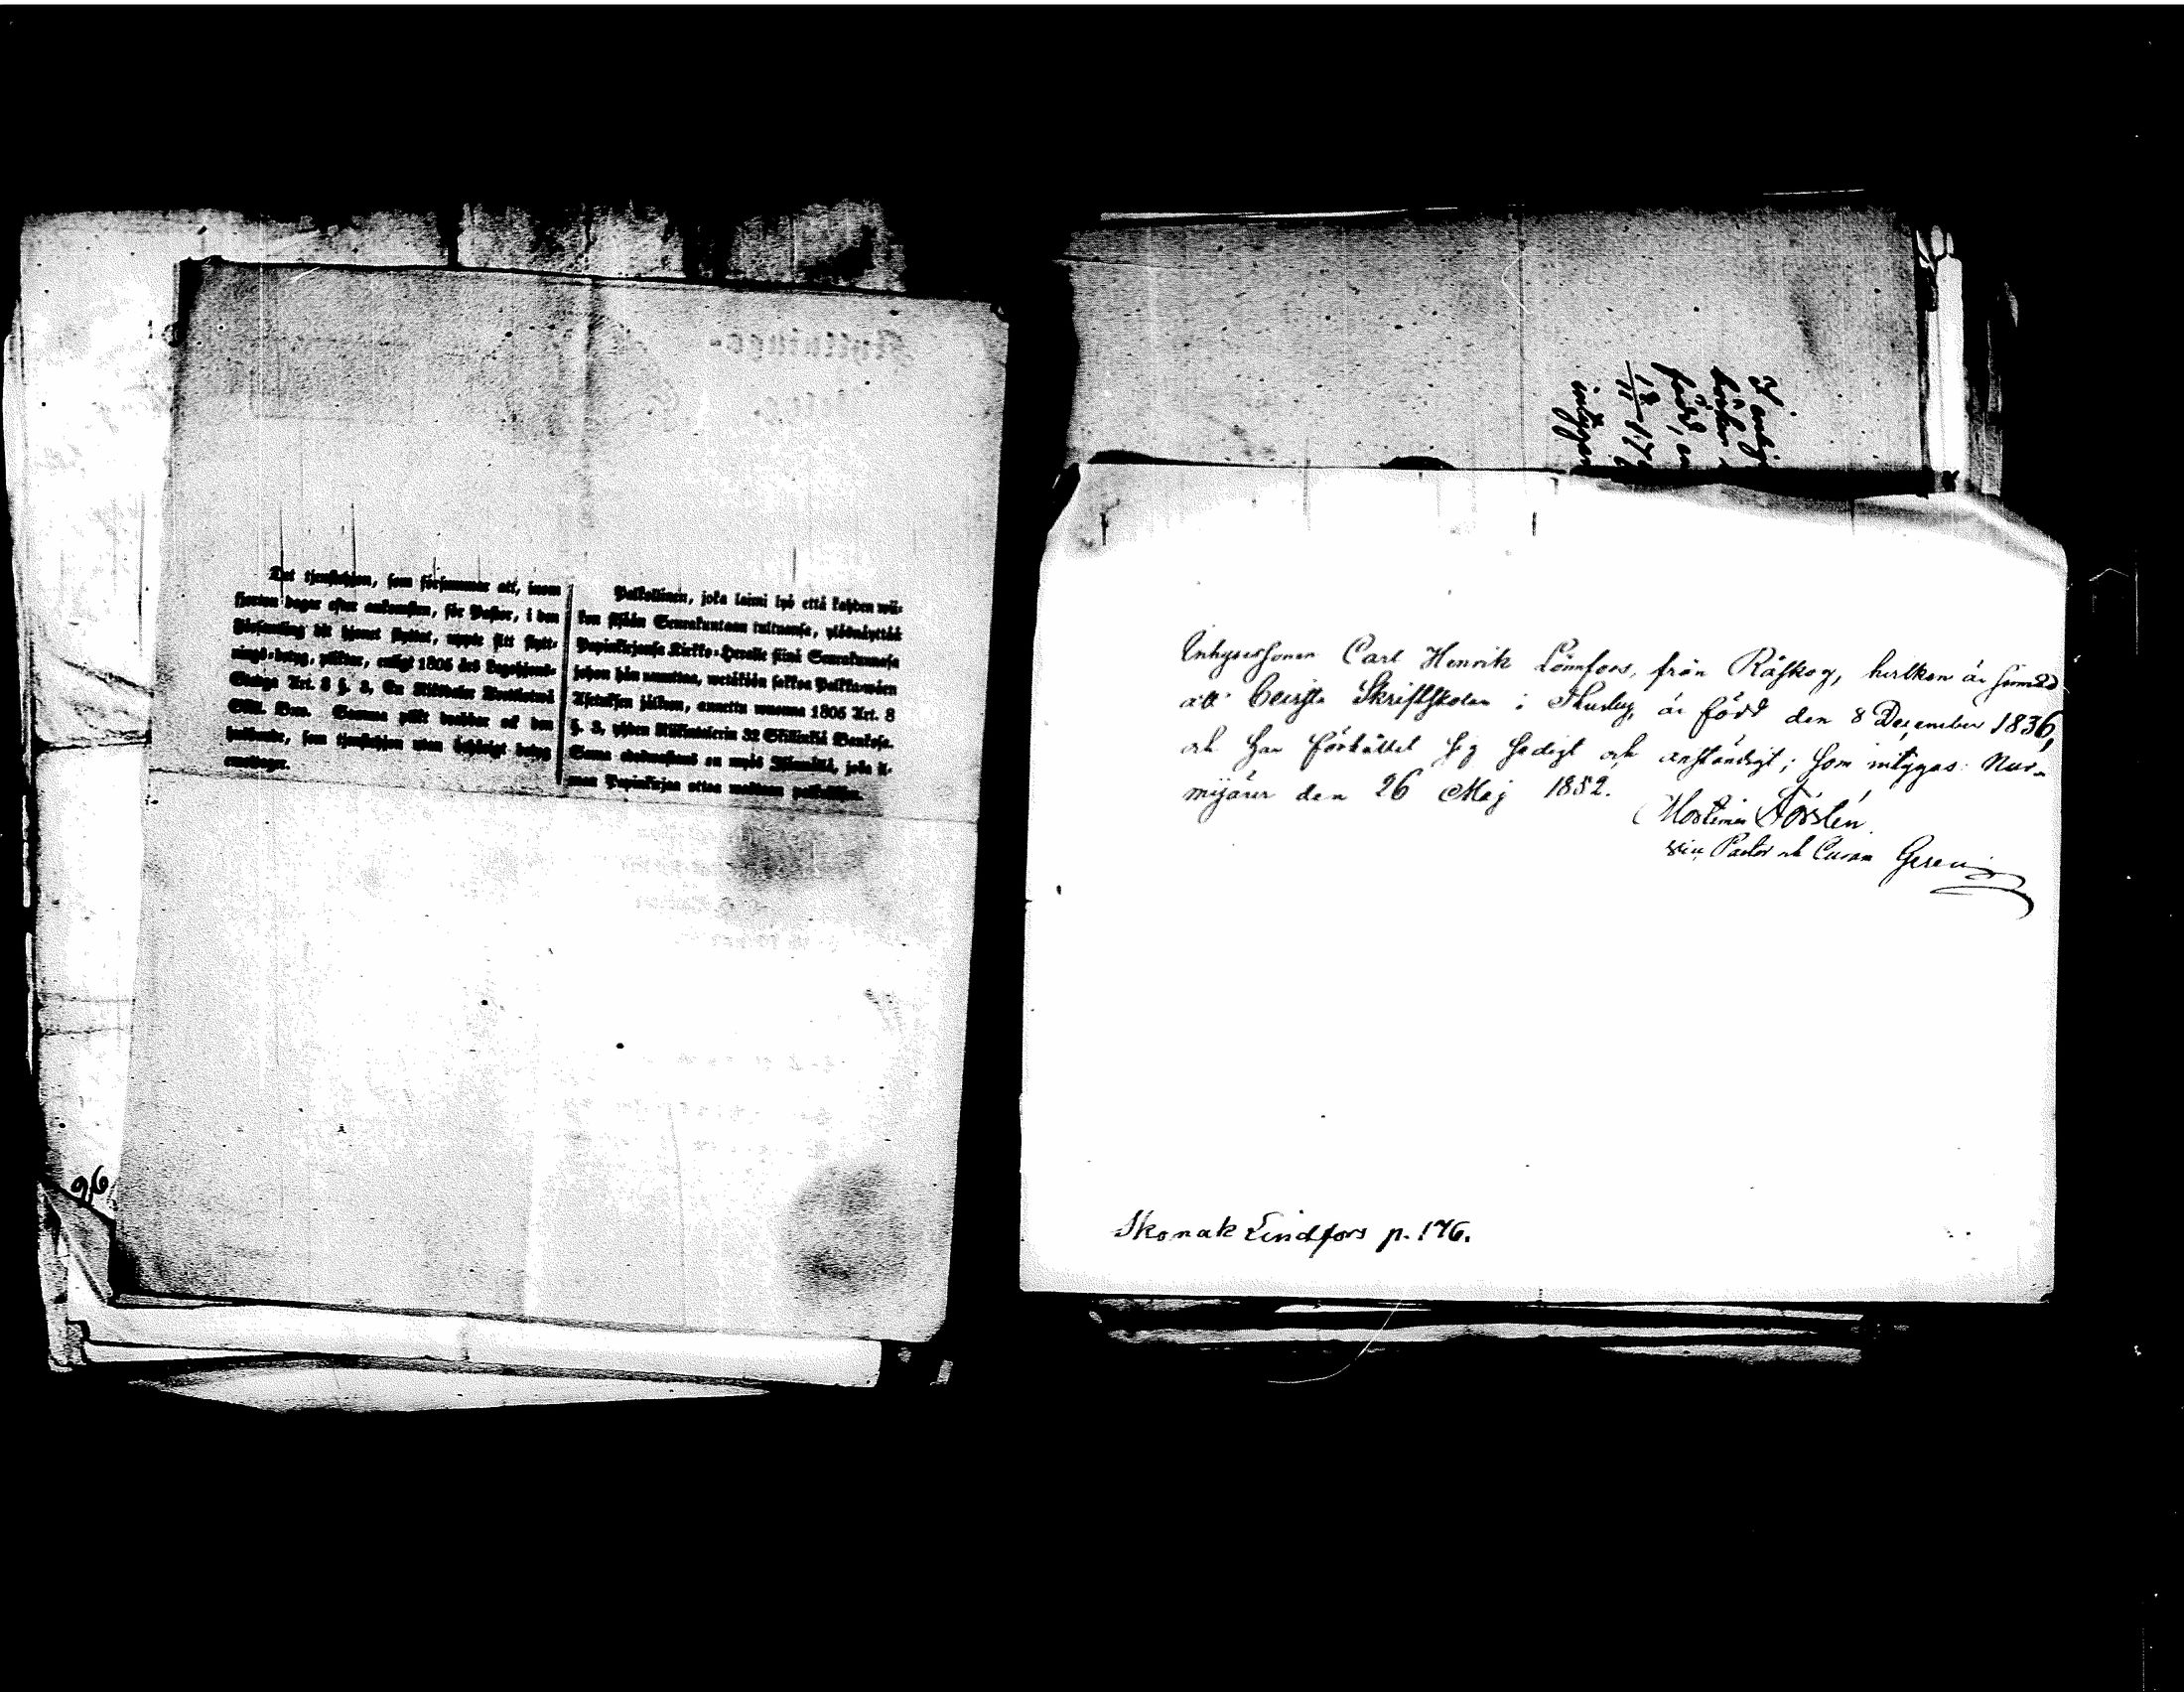 Det tjenstehjon, som försummar att, inom
fjorton dagar efter ankomsten, för Pastor, i den
Församling dit hjonet flyttat, uppte sitt flytt-
nings-betyg, pliktar, enligt 1805 års Legohjons-
Stadga Art. 8 §. 3, En Riksdaler Trettiotwå
Skill. Bco. Samma plikt drabbar ock den
husbonde, som tjenstehjon utan behörigt betyg
emottager.
Palkollinen, joka laimi lyö että kahden wii-
kon sisään Seurakuntaan tultuansa, ylösnäyttää
Papinkirjansa Kirkko-Herralle siinä Seurakunnassa
johon hän muuttaa, wetäköön sakkoa Palkkawäen
Asetuksen jälkeen, annettu wuonna 1805 Art. 8
§. 3, yhden Riksdalerin 32 Skillinkiä Bankossa.
Sama edesvastaus on myös Isännällä, joka il-
man Papinkirjaa ottaa wastaan palkollisen.
96
född
intygar
Inhysessonen Carl Henrik Lönnfors, från Råskog, hvilken är sinnad
att bevista Skriftskolan i Thusby, är född den 8 December 1836,
och har förhållit sig sedigt och anständigt; som intygas: Nur-
mijärvi den 26 Maj 1852.
Mortimer Forstén.
vice Pastor och Curam Gerens
Skomak Lindfors p. 176.